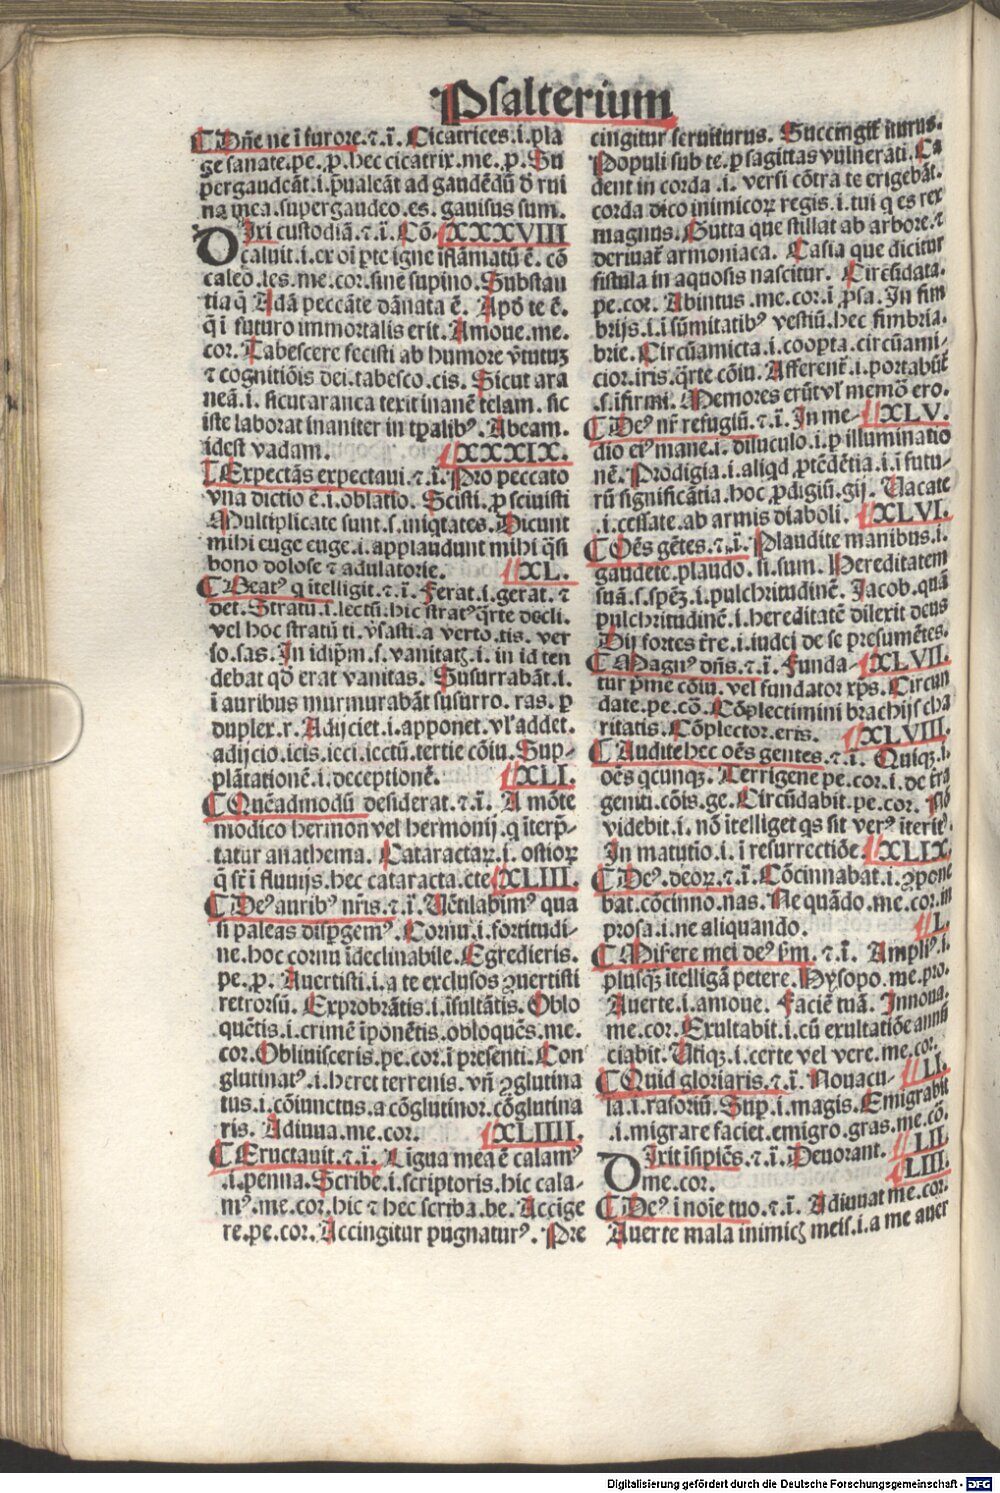 Psalterium
¶ Dñe ne ĩ furore.⁊.ĩ. Cicatrices.i.pla
ge sanate.pe.p̱.hec cicatrix.me.p̱.Su
p̱ergaudeãt.i.p̃ualeãt ad gaudẽdũ ꝺ̃ rui
na mea.supergaudeo.es.gauisus sum.
DIxi custodiã.⁊.ĩ. Cõ. XXXVIII
caluit.i.ex oĩ p̱te igne ĩflãmatũ ẽ. cõ
caleo.les.me.cor.sinẽ supino.Substan
tia q̃ Adã peccãte dãnata ẽ. Apď te ẽ.
q̃ ĩ futuro immortalis erit. Amoue.me.
cor.Tabescere fecisti ab humore ṽtutuʒ
⁊ cognitiõis dei.tabesco.cis. Sicut ara
neã.i. sicut aranea texit inanẽ telam. sic
iste laborat inaniter in tp̃alibꝰ.Abeam.
idest vadam. XXXIX.
¶ Expectãs expectaui.⁊.ĩ. Pro peccato
vna dictio ẽ.i.oblatio. Scisti.p̱ sciuisti
Multiplicate sunt.s.iniq̃tates.Dicunt
mihi euge euge.i.applaudunt mihi q̃si
bono dolose ⁊ adulatorie. XL.
¶ Beatꝰ q̃ ĩtelligit.⁊.ĩ. Ferat.i.gerat. ⁊
det.Stratũ.i.lectũ.hic stratꝰ q̃rte decli.
vel hoc stratũ ti.ṽsasti.a verto.tis. ver
so.sas.In idip̃m.s.vanitatꝫ.i. in id ten
debat qď erat vanitas. Susurrabãt.i.
ĩ auribus murmurabãt susurro. ras. p̱
duplex.r. Adijciet.i.apponet.vl̃ addet.
adijcio.icis.ieci.iectũ.tertie cõiu.Sup-
plãtationẽ.i.deceptionẽ. XLI.
¶ Quẽadmodũ desiderat.⁊.ĩ. A mõte
modico hermon vel hermonij.q̃ ĩterp̃-
tatur anathema. Cataractaꝝ.i. ostioꝝ
q̃ st̃ ĩ fluuijs.hec cataracta.cte XLIII.
¶ Deꝰ auribꝰ nr̃is.⁊.ĩ. Uẽtilabimꝰ qua
si paleas disp̱gemꝰ.Cornu.i.fortitudi-
ne.hoc cornu ĩdeclinabile.Egredieris.
pe.p̱. Auertisti.i.a te exclusos ꝯuertisti
retrorsũ. Exprobrãtis.i.ĩsultãtis. Oblo
quẽtis.i.crimẽ ĩponẽtis.obloquẽs.me.
cor.Obliuisceris.pe.cor.ĩ presenti.Con
glutinatꝰ.i.heret terrenis. vñ ꝯglutina
tus.i.cõiunctus.a cõglutinor.cõglutina
ris. Adiuua.me.cor. XLIIII.
¶ Eructauit.⁊.ĩ. Lĩgua mea ẽ calamꝰ
.i.penna.Scribe.i.scriptoris.hic cala-
mꝰ.me.cor.hic ⁊ hec scriba.be. Accige
re.pe.cor.Accingitur pugnaturꝰ. Pre
cingitur seruiturus. Succingit̃ iturus.
Populi sub te.p̱ sagittas vulnerati. Ca
dent in corda .i. versi cõtra te erigebãt.
corda dico inimicoꝝ regis.i.tui q̃ es rex
magnus. Gutta que stillat ab arbore.⁊
deriuat̃ armoniaca. Casia que dicitur
fistula in aquosis nascitur. Circũdata.
pe.cor. Abintus.me.cor.ĩ p̱sa.In fim
brijs.i.ĩ sũmitatibꝰ vestiũ.hec fimbria.
brie.Circũamicta.i.coop̱ta.circũami-
cior.iris.q̃rte cõiu.Afferent̃.i.portabũt̃
.s.ĩfirmi.Memores erũt vl̃ memõ ero.
¶ Deꝰ nr̃ refugiũ.⁊.ĩ.In me- XLV.
dio eiꝰ mane.i.diluculo.i.p̱ illuminatio
nẽ.Prodigia.i.aliqď p̱tẽdẽtia.i.ĩ futu-
rũ significãtia.hoc p̱digiũ.gij. Uacate
.i.cessate.ab armis diaboli. XLVI.
¶ Oẽs gẽtes.⁊.ĩ. Plaudite manibus.i.
gaudete.plaudo.si.sum. Hereditatem
suã.s.spẽꝫ.i.pulchritudinẽ. Jacob.quã
pulchritudinẽ.i.hereditatẽ dilexit deus
Dij fortes t̃re.i.iudei de se presumẽtes.
¶ Magnꝰ dñs.⁊.ĩ. Funda- XLVII.
tur p̃me cõiu.vel fundator xp̃s. Circun
date.pe.cõ.Cõplectimini brachijs cha
ritatis.Cõplector.eris. XLVIII.
¶ Audite hec oẽs gentes.⁊.ĩ. Quiqꝫ.i.
oẽs q̃cunqꝫ. Terrigene pe.cor.i. de t̃ra
geniti.cõis.ge.Circũdabit.pe.cor. Nõ
videbit.i. nõ ĩtelliget q̃s sit verꝰ ĩteritꝰ.
In matutio.i.ĩ resurrectiõe. XLIX.
¶ Deꝰ.deoꝝ.⁊.ĩ. Cõcinnabat.i.ꝯpone
bat.cõcinno.nas. Ne quãdo.me.cor.in
prosa.i.ne aliquando. L.
¶ Misere mei deꝰ sm̃. ⁊.ĩ. Ampliꝰ.i.
plusqꝫ ĩtelligã petere.Hysopo.me.pro.
Auerte.i.amoue. Faciẽ tuã. Innoua.
me.cor.Exultabit.i.cũ exultatiõe annũ
ciabit. Utiqꝫ.i.certe vel vere.me.cor.
¶ Quid gloriaris.⁊.ĩ. Nouacu- LI.
la.i.rasoriũ. Sup̱.i.magis.Emigrabit
.i.migrare faciet.emigro.gras.me.cõ.
DIxit ĩsipiẽs.⁊.ĩ. Deuorant. LII.
me.cor. LIII.
¶ Deꝰ ĩ noĩe tuo.⁊.ĩ. Adiuuat me.cor.
Auerte mala inimicꝭ meis.i.a me auer
Digitalisierung gefördert durch die Deutsche Forschungsgemeinschaft - DFG